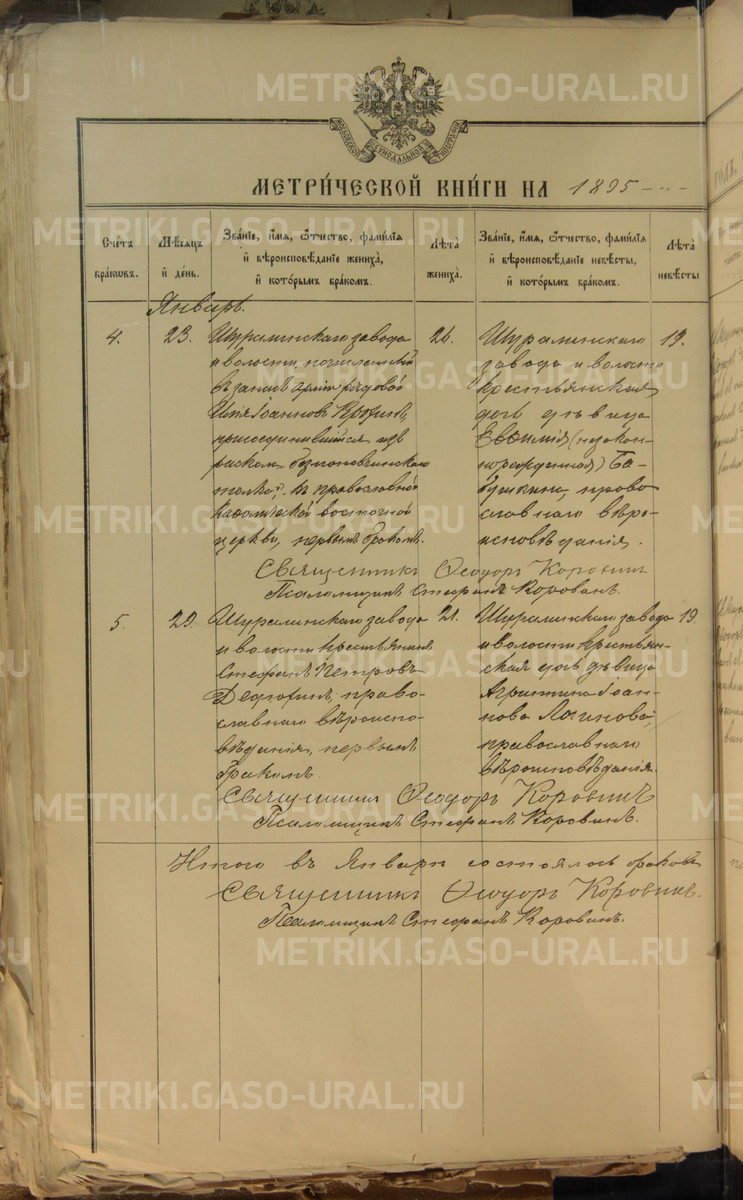 МОСКОВСКОЙ СѴНОДАЛЬНОЙ ТИПОГРАФІИ
МЕТРИ́ЧЕСКОЙ КНИ́ГИ НА 1895
Счетъ браковъ.
Мѣсяцъ и день.
Званіе, имя, отчество, фамилія и вѣроисповѣданіе жениха, и которымъ бракомъ.
Лѣта жениха.
Званіе, имя, отчество, фамилія и вѣроисповѣданіе невѣсты, и которымъ бракомъ.
Лѣта невѣсты
Январь.
4.
23.
Шуралинскаго завода
и волости, зачисленный
въ запасъ арміи рядовой
Илія Іоанновъ
присоединившійся изъ
раскола безпоповщинскаго
толка, къ православной
каѳолической восточной
церкви, первымъ бракомъ.
26.
Шуралинскаго
завода и волости
крестьянская
дочь дѣвица
Евѳимія (незакон-
норожденная) Ба-
бушкина, право-
славнаго вѣро-
исповѣданія.
19.
Священникъ Ѳеодоръ Коровинъ
Псаломщикъ Стефанъ Корованъ.
5.
29.
Шуралинскаго завода
и волости крестьянинъ
Стефанъ Петровъ
право-
славнаго вѣроиспо-
вѣданія, первымъ
бракомъ.
21.
Шуралинскаго завода
и волости крестьян-
ская дочь дѣвица
Агриппина Іоан-
нова Логинова,
православнаго
вѣроисповѣданія.
19.
Священникъ Ѳеодоръ Коровинъ
Псаломщикъ Стефанъ Корованъ.
Итого въ Январѣ состоялось браковъ
Священникъ Ѳеодоръ Коровинъ.
Псаломщикъ Стефанъ Корованъ.
METRIKI.GASO-URAL.RU